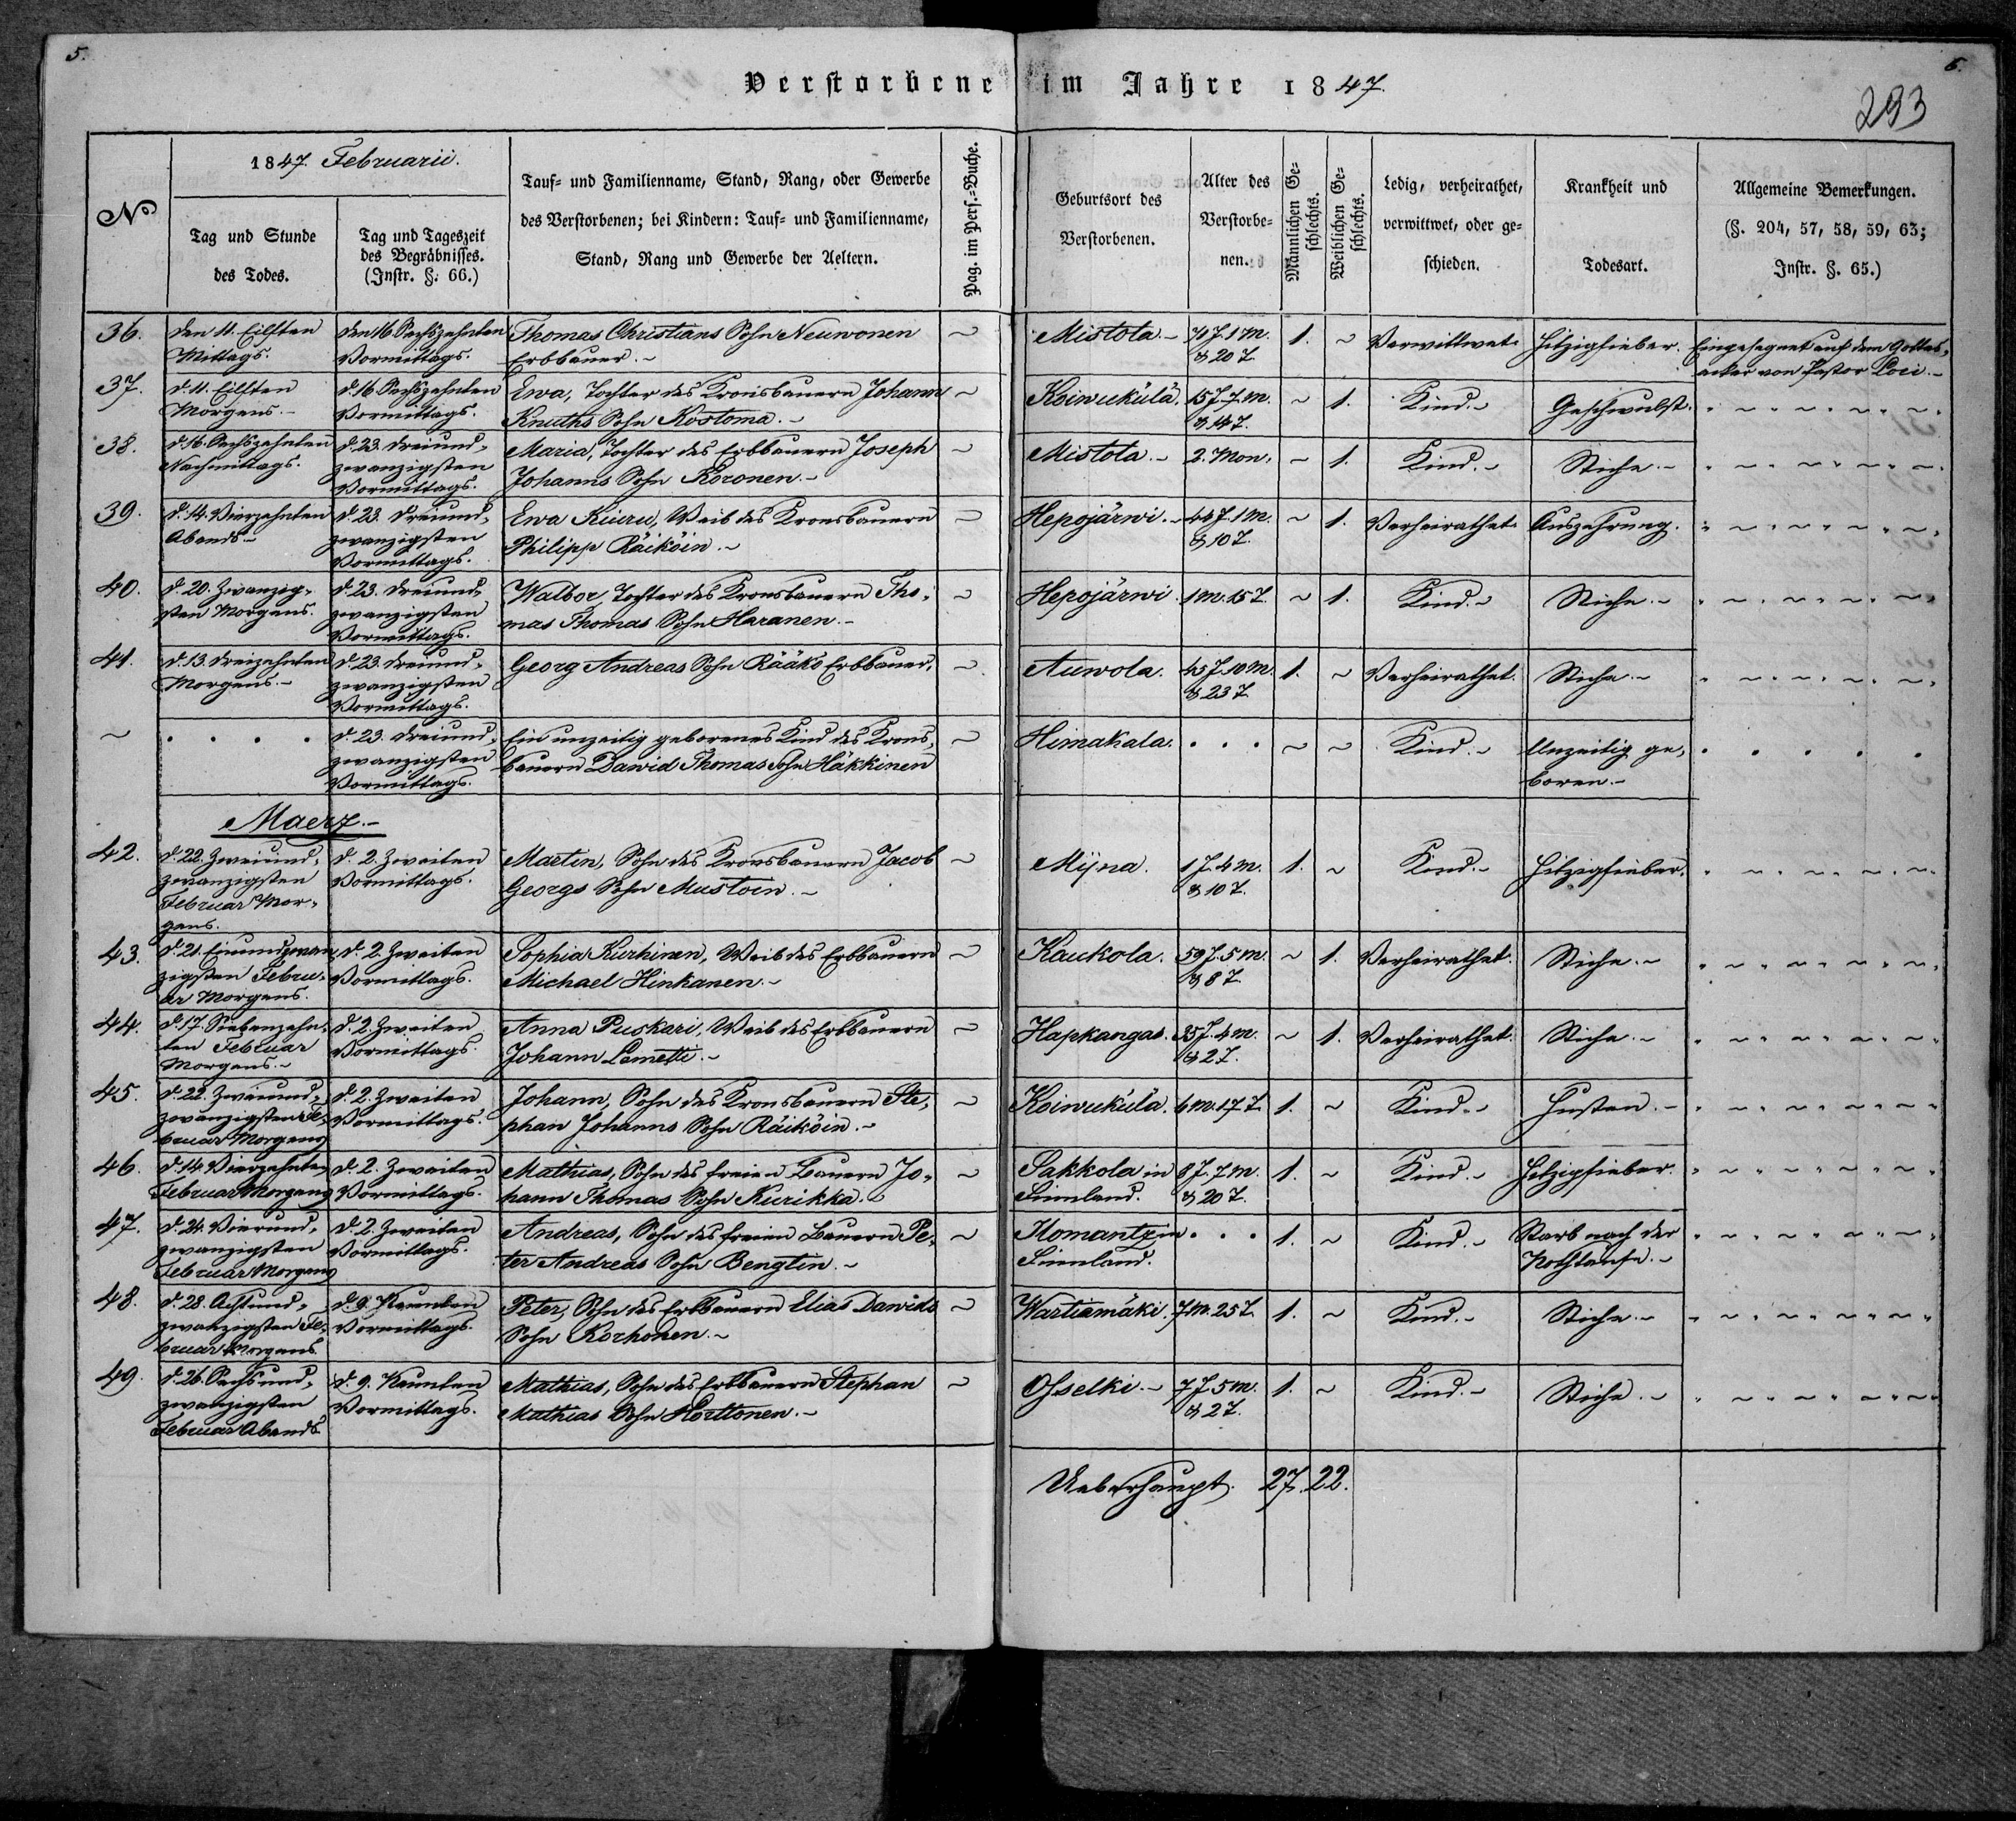 5.
6.
Verstorbene im Jahre 1847.
293
No
1847. Februarii.
Tag und Stunde
des Todes.
Tag und Tageszeit
des Begräbnisses.
(Instr. §. 66.)
Tauf- und Familienname, Stand, Rang, oder Gewerbe
des Verstorbenen; bei Kindern: Tauf- und Familienname,
Stand, Rang und Gewerbe der Aeltern.
Pag. im Pers.-Buche.
Geburtsort des
Verstorbenen.
Alter des
Verstorbe-
nen.
Männlichen Ge-
schlechts.
Weiblichen Ge-
schlechts.
Ledig, verheirathet,
verwittwet, oder ge-
schieden.
Krankheit und
Todesart.
Allgemeine Bemerkungen.
(§. 204, 57, 58, 59, 63;
Instr. §. 65.)
36.
den 11. Eilften
Mittags.
den 16 Sechszehnten
Vormittags.
Thomas Christians Sohn Neuwonen
Erbbauer.
Mistola.
J. 1 M.
& 20 T.
1.
Verwittwet.
Hitzigfieber.
Eingesegnet auf dem Gottes-
acker von Pastor
37.
d. 11. Eilften
Morgens.
d. 16 Sechszehnten
Vormittags.
Ewa, Tochter des Kronsbauern Johann
Knuths Sohn Kostoma.
Koiwukülä.
15 J. 7 M.
& 14 T.
1.
Kind.
Geschwulst.
38.
d. 16 Sechszehnten
Nachmittags.
d. 23. Dreiund-
zwanzigsten
Vormittags.
Maria, Tochter des Erbbauern Joseph
Johanns Sohn Koronen.
Mistola.
2. Mon.
1.
Kind.
Stiche.
39.
d. 14. Vierzehnten
Abends
d. 23. Dreiund-
zwanzigsten
Vormittags.
Ewa Kiuru, Weib des Kronsbauern
Philipp Räiköin.
Hepojärwi.
44 J. 1 M.
& 10 T.
1.
Verheirathet.
Auszehrung.
40.
d. 20. Zwanzig-
sten Morgens.
d. 23. Dreiund-
zwanzigsten
Vormittags.
Walbor Tochter des Kronsbauern Tho-
mas Thomas Sohn Haranen.
Hepojärwi.
1 M. 15 T.
1.
Kind.
Stiche.
41.
d. 13. Dreizehnten
Morgens.
d. 23. Dreiund-
zwanzigsten
Vormittags.
Georg Andreas Sohn Rääkö Erbbauer.
Auwola.
45 J. 10 M.
& 23 T.
1.
Verheirathet.
Stiche.
d. 23. Dreiund-
zwanzigsten
Vormittags.
Ein unzeitig geborenes Kind des Krons-
bauern Dawid Thomas Sohn Häkkinen
Himakala.
Kind.
Unzeitig ge-
boren.
Maerz.
42.
d. 22. Zweiund-
zwanzigsten
Februar Mor-
gens.
d. 2. Zweiten
Vormittags.
Martin, Sohn des Kronsbauern Jacob
Georgs Sohn Mustoin.
Mÿna.
1 J. 4 M.
& 10 T.
1.
Kind.
Hitzigfieber.
43.
d. 21. Einundzwan-
zigsten Febru-
ar Morgens.
d. 2. Zweiten
Vormittags.
Sophia Kurhinen, Weib des Erbbauern
Michael Hinkanen.
Kaukola.
59 J. 5 M.
& 8 T.
1.
Verheirathet.
Stiche.
44.
d. 17. Siebenzehn-
ten Februar
Morgens.
d. 2. Zweiten
Vormittags.
Anna Puskari, Weib des Erbbauern
Johann Lemetti.
Hapkangas.
35 J. 4 M.
& 2 T.
1.
Verheirathet.
Stiche.
45.
d. 22. Zweiund-
zwanzigsten Fe-
bruar Morgens
d. 2. Zweiten
Vormittags.
Johann, Sohn des Kronsbauern Ste-
phan Johanns Sohn Räiköin.
Koiwukülä.
6 M. 17 T.
1.
Kind.
Husten.
46.
d. 14. Vierzehnten
Februar Morgens
d. 2. Zweiten
Vormittags.
Mathias, Sohn des freien Bauern Jo-
hann Thomas Sohn Kurikka.
Sakkola in
Finnland.
8 J. 7 M.
& 20 T.
1.
Kind.
Hitzigfieber.
47.
d. 24. Vierund-
zwanzigsten
Februar Morgens
d. 2. Zweiten
Vormittags.
Andreas, Sohn des freien Bauern Pe-
ter Andreas Sohn Bengtin.
Ilomantz in
Finnland.
1.
Kind.
Starb nach der
Nothtaufe.
48.
d. 28. Achtund-
zwanzigsten Fe-
bruar Morgens.
d. 9. Neunten
Vormittags.
Peter, Sohn des Erbbauern Elias Dawids
Sohn Korhonen.
Wartiamäki.
7 M. 25 T.
1.
Kind.
Stiche.
49.
d. 26. Sechsund-
zwanzigsten
Februar Abends
d. 9. Neunten
Vormittags.
Mathias, Sohn des Erbbauern Stephan
Mathias Sohn Horttonen.
Osselki.
7 J. 5 M.
& 2 T.
1.
Kind.
Stiche.
Ueberhaupt. 27. 22.